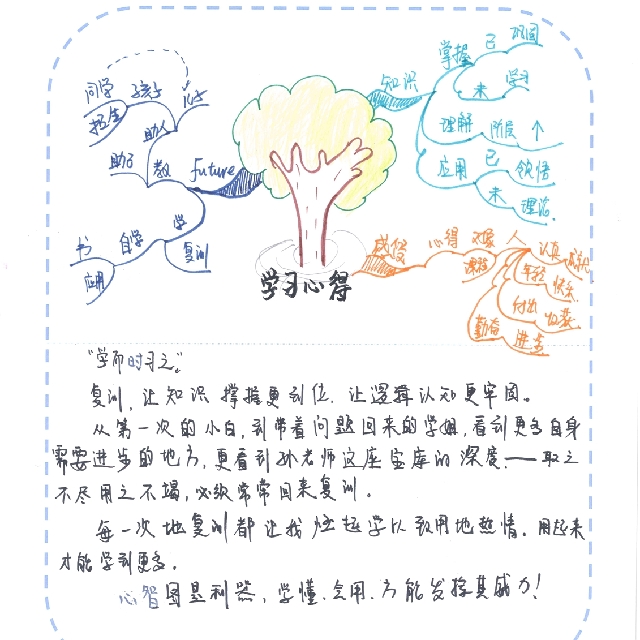 知识
掌握 已 巩固
未 学习
理解 阶段
应用 已 领悟
未 理论
future
教
助人
孩子
同学
招生
学
自学
书
应用
复训
感悟
心得 对象 人
课程
认真 成就
年轻 快乐
付出 收获
勤奋 进步
学习心得
"学而时习之"。
复训，让知识掌握更到位，让逻辑认知更牢固。
从第一次的小白，到带着问题回来的学姐，看到更多自身
需要进步的地方，更看到孙老师这座宝库的深度。——取之
不尽用之不竭，必须常常回来复训。
每一次地复训都让我燃起学以致用地热情。用起来
才能学到更多。
心智图是利器，学懂、会用、方能发挥其威力！